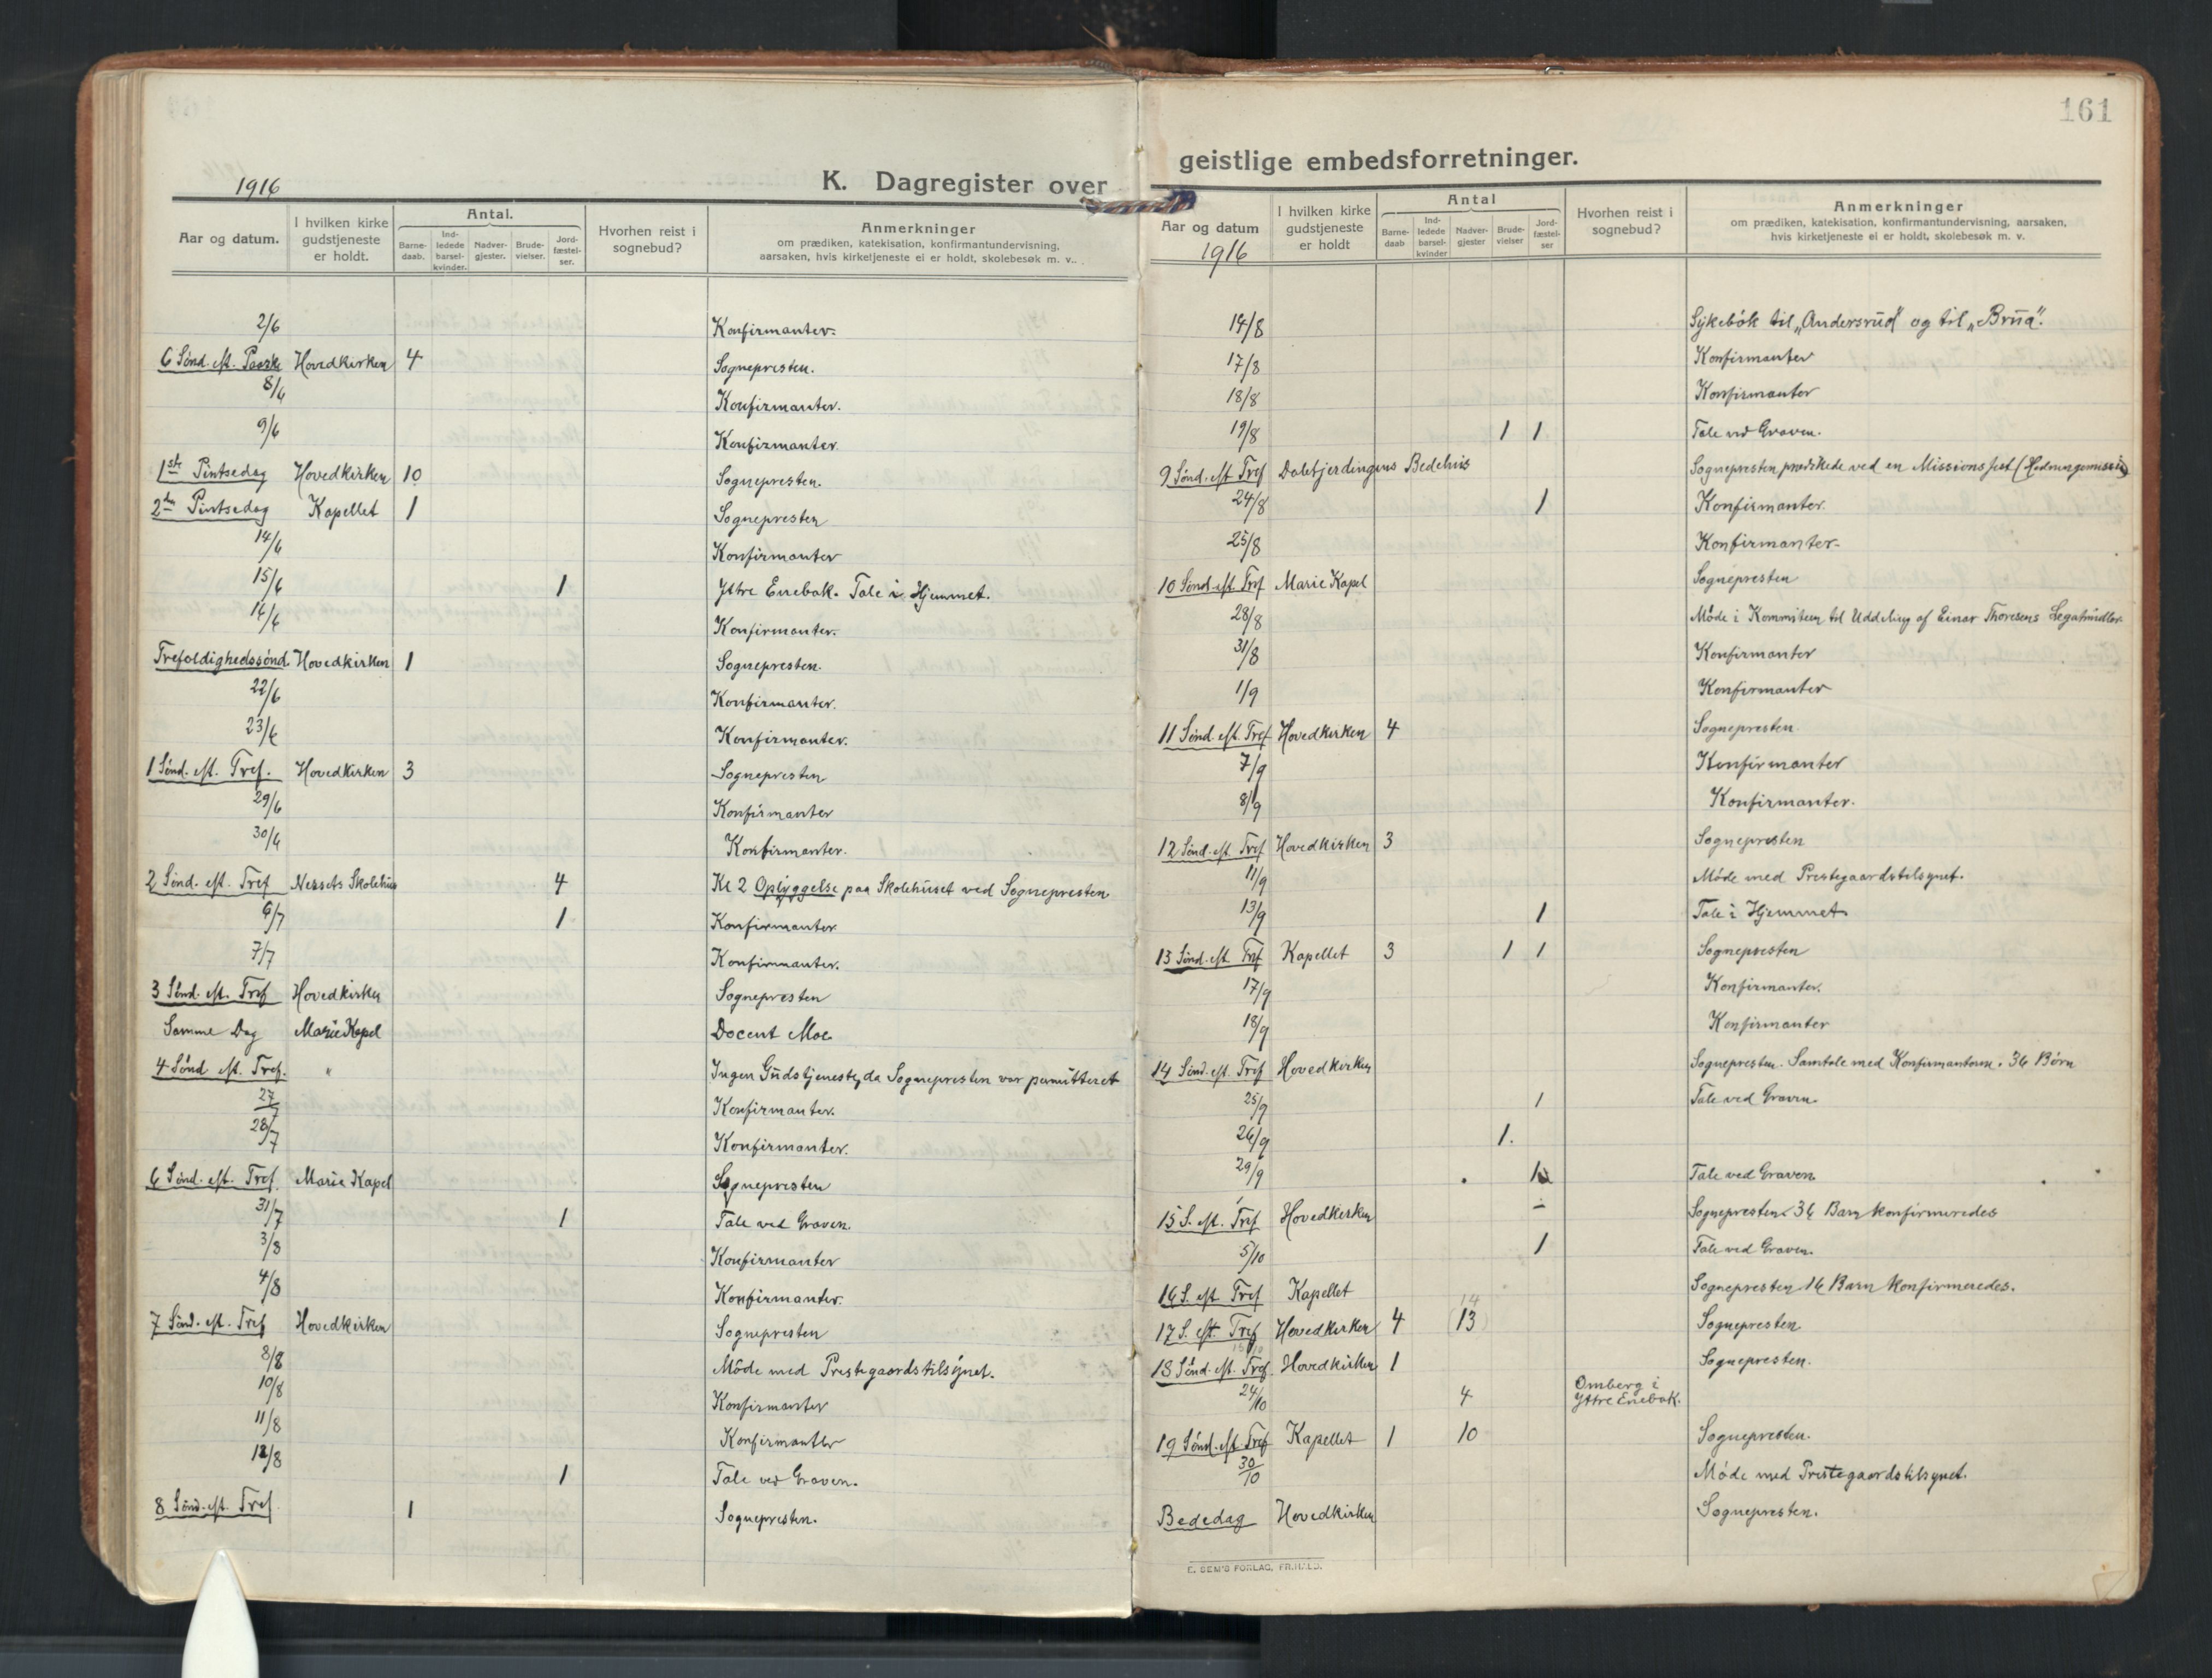 161
1916
K. Dagregister over
geistlige embedsforretninger.
Aar og datum.
I hvilken kirke gudstjeneste er holdt.
Antal.
Barne-daab.
Ind-ledede barsel-kvinder.
Nadver-gjester.
Brude-vielser.
Jord-fæstel-ser.
Hvorhen reist i sognebud?
Anmerkninger
om prædiken, katekisation, konfirmantundervisning, aarsaken, hvis kirketjeneste ei er holdt, skolebesøk m. v..
2/6 Konfirmanter.
6 Sønd. eft. Paaske Hovedkirken 4 Sognepresten.
8/6 Konfirmanter.
9/6 Konfirmanter
1ste Pintsedag Hovedkirken 10 Sognepresten.
2den Pintsedag Kapellet 1 Sognepresten
14/6 Konfirmanter
15/6 1 Ytre Enebak. Tale i Hjemmet.
16/6 Konfirmanter.
Trefoldighedssønd. Hovedkirken 1 Sognepresten.
22/6 Konfirmanter.
23/6 Konfirmanter.
1 Sønd. eft. Tref. Hovedkirken 3 Sognepresten
29/6 Konfirmanter
30/6 Konfirmanter.
2 Sønd. eft. Tref Nessets Skolehus 4 Kl 2 Opbyggelse paa Skolehuset ved Sognepresten
6/7 1 Konfirmanter
7/7 Konfirmanter.
3 Sønd. eft. Tref Hovedkirken Sognepresten
Samme Dag Marie Kapel Docent Moe
4 Sønd eft. Tref. " Ingen Gudstjeneste, da Sognepresten var permitteret
27/7 Konfirmanter.
28/7 Konfirmanter.
6 Sønd. eft. Tref. Marie Kapel Sognepresten
31/7 1 Tale ved Graven.
3/8 Konfirmanter
4/8 Konfirmanter.
7 Sønd. eft. Tref Hovedkirken Sognepresten
8/8 Møde med Prestegaardstilsynet.
10/8 Konfirmanter
11/8 Konfirmanter
12/8 1 Tale ved Graven.
8 Sønd. eft. Tref 1 Sognepresten.
Aar og datum
1916
I hvilken kirke gudstjeneste er holdt
Antal
Barne-daab
Ind-ledede barsel-kvinder
Nadver-gjester
Brude-vielser
Jord-fæstel-ser
Hvorhen reist i sognebud?
Anmerkninger
om prædiken, katekisation, konfirmantundervisning, aarsaken, hvis kirketjeneste ei er holdt, skolebesøk m. v.
14/8 Sykebök til „Andersrud" og til „Brua".
17/8 Konfirmanter
18/8 Konfirmanter
19/8 1 1 Tale ved Graven.
9 Sønd. eft Tref Dalefjerdingens Bedehus Sognepresten prædikede ved en Missionsfest (Hedningemission)
24/8 1 Konfirmanter.
25/8 Konfirmanter.
10 Sønd. eft. Tref Marie Kapel Sognepresten
28/8 Møde i Kommiteen til Uddeling af Einar Thoresens Legatmidler.
31/8 Konfirmanter
1/9 Konfirmanter
11 Sønd. eft. Tref Hovedkirken 4 Sognepresten.
7/9 Konfirmanter
8/9 Konfirmanter.
12 Sønd. eft Tref Hovedkirken 3 Sognepresten
11/9 Møde med Prestegaardstilsynet.
13/9 1 Tale i Hjemmet
13 Sønd. eft Tref Kapellet 3 1 1 Sognepresten
17/9 Konfirmanter.
18/9 Konfirmanter
14 Sønd. eft Tref Hovedkirken Sognepresten. Samtale med Konfirmanterne. 36 Børn
25/9 1 Tale ved Graven.
26/9 1.
29/9 Tale ved Graven
15 S. eft. Tref Hovedkirken Sognepresten. 36 Barn konfirmeredes
5/10 1 Tale ved Graven.
16 S. eft Tref Kapellet Sognepresten 16 Barn konfirmeredes.
14
17 S. eft. Tref Hovedkirken 4 (13) Sognepresten
18 Sønd. eft. Tref. Hovedkirken 1 Sognepresten.
24/10 4 Omberg i Yttre Enebak.
19 Sønd. eft. Tref Kapellet 1 10 Sognepresten.
30/10 Møde med Prestegaardstilsynet.
Bededag Hovedkirken Sognepresten.
E. SEM'S FORLAG, FR.HALD.